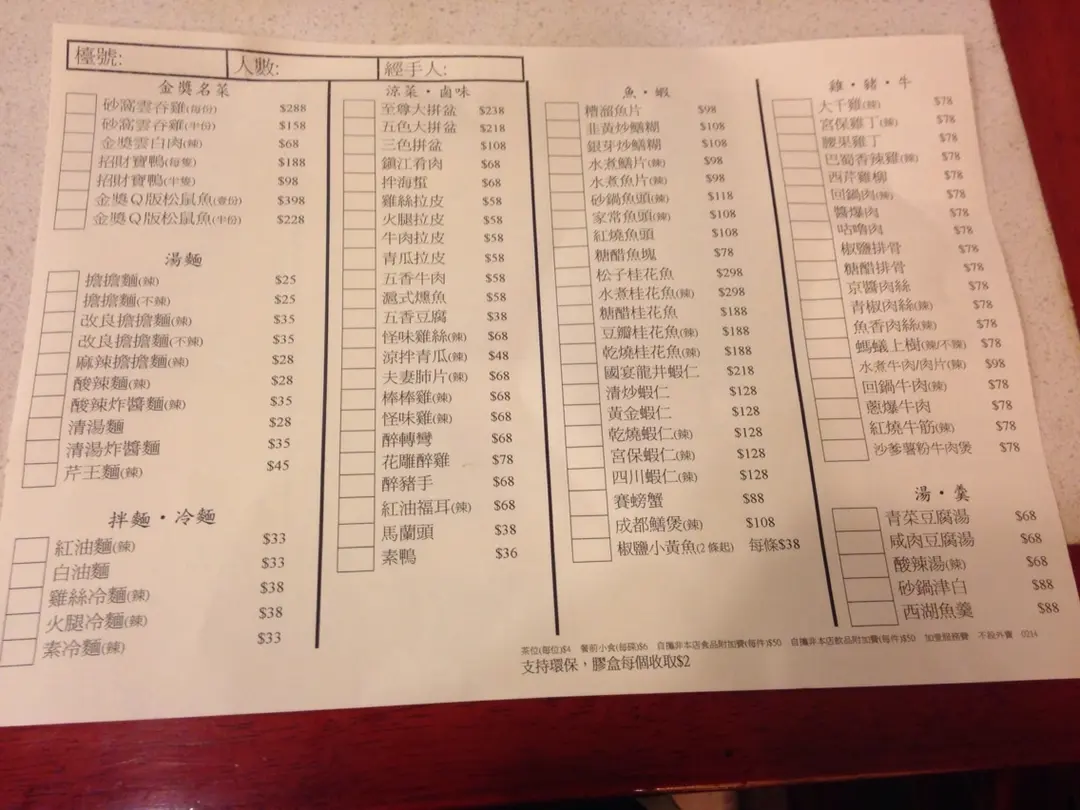 檯號:
人數:
經手人:
金獎名菜
砂窩雲吞雞(每份) $288
砂窩雲吞雞(半份) $158
金獎雲白肉(辣) $68
招財寶鴨(每隻) $188
招財寶鴨(半隻) $98
金獎Q版松鼠魚(壹份) $398
金獎Q版松鼠魚(半份) $228
湯麵
擔擔麵(辣) $25
擔擔麵(不辣) $25
改良擔擔麵(辣) $35
改良擔擔麵(不辣) $35
麻辣擔擔麵(辣) $28
酸辣麵(辣) $28
酸辣炸醬麵(辣) $35
清湯麵 $28
清湯炸醬麵 $35
芹王麵(辣) $45
拌麵·冷麵
紅油麵(辣) $33
白油麵 $33
雞絲冷麵(辣) $38
火腿冷麵(辣) $38
素冷麵(辣) $33
涼菜·鹵味
至尊大拼盆 $238
五色大拼盆 $218
三色拼盆 $108
鎮江肴肉 $68
拌海蜇 $68
雞絲拉皮 $58
火腿拉皮 $58
牛肉拉皮 $58
青瓜拉皮 $58
五香牛肉 $58
滬式燻魚 $58
五香豆腐 $38
怪味雞絲(辣) $68
涼拌青瓜(辣) $48
夫妻肺片(辣) $68
棒棒雞(辣) $68
怪味雞(辣) $68
醉轉彎 $68
花雕醉雞 $78
醉豬手 $68
紅油福耳(辣) $68
馬蘭頭 $38
素鴨 $36
魚·蝦
糟溜魚片 $98
韭黃炒鱔糊 $108
銀芽炒鱔糊 $108
水煮鱔片(辣) $98
水煮魚片(辣) $98
砂鍋魚頭(辣) $118
家常魚頭(辣) $108
紅燒魚頭 $108
糖醋魚塊 $78
松子桂花魚 $298
水煮桂花魚(辣) $298
糖醋桂花魚 $188
豆瓣桂花魚(辣) $188
乾燒桂花魚(辣) $188
國宴龍井蝦仁 $218
清炒蝦仁 $128
黃金蝦仁 $128
乾燒蝦仁(辣) $128
宮保蝦仁(辣) $128
四川蝦仁(辣) $128
賽螃蟹 $88
成都鱔煲(辣) $108
椒鹽小黃魚(2條起) 每條$38
雞·豬·牛
大千雞(辣) $78
宮保雞丁(辣) $78
腰果雞丁 $78
巴蜀香辣雞(辣) $78
西芹雞柳 $78
回鍋肉(辣) $78
醬爆肉 $78
咕嚕肉 $78
椒鹽排骨 $78
糖醋排骨 $78
京醬肉絲 $78
青椒肉絲(辣) $78
魚香肉絲(辣) $78
螞蟻上樹(辣/不辣) $78
水煮牛肉/肉片(辣) $98
回鍋牛肉(辣) $78
蔥爆牛肉 $78
紅燒牛筋(辣) $78
沙爹薯粉牛肉煲 $78
湯·羹
青菜豆腐湯 $68
咸肉豆腐湯 $68
酸辣湯(辣) $68
砂鍋津白 $88
西湖魚羹 $88
茶位(每位)$4 餐前小食(每碟)$6 自攜非本店食品附加費(每件)$50 自攜非本店飲品附加費(每件)$50 加壹服務費 不設外賣 0214
支持環保,膠盒每個收取$2